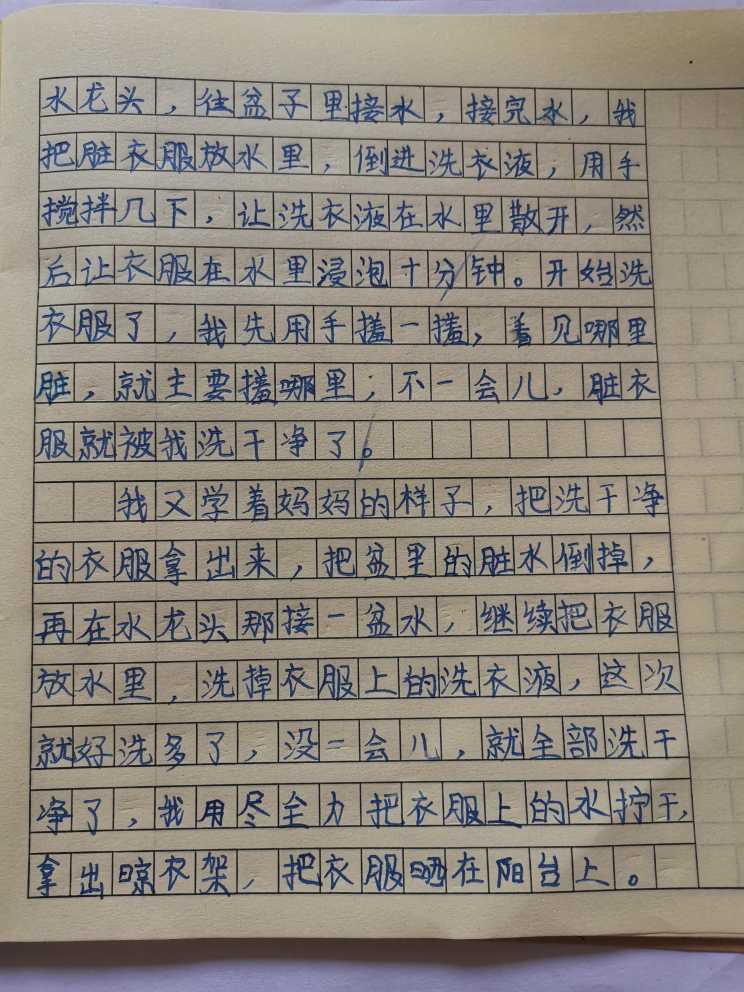 水龙头，往盆子里接水，接完水，我
把脏衣服放水里，倒进洗衣液，用手
搅拌几下，让洗衣液在水里散开，然
后让衣服在水里浸泡十分钟。开始洗
衣服了，我先用手搓一搓，看见哪里
脏，就主要搓哪里，不一会儿，脏衣
服就被我洗干净了。
我又学着妈妈的样子，把洗干净
的衣服拿出来，把盆里的脏水倒掉，
再在水龙头那接一盆水，继续把衣服
放水里，洗掉衣服上的洗衣液，这次
就好洗多了，没一会儿，就全部洗干
净了，我用尽全力把衣服上的水拧干，
拿出晾衣架，把衣服晒在阳台上。